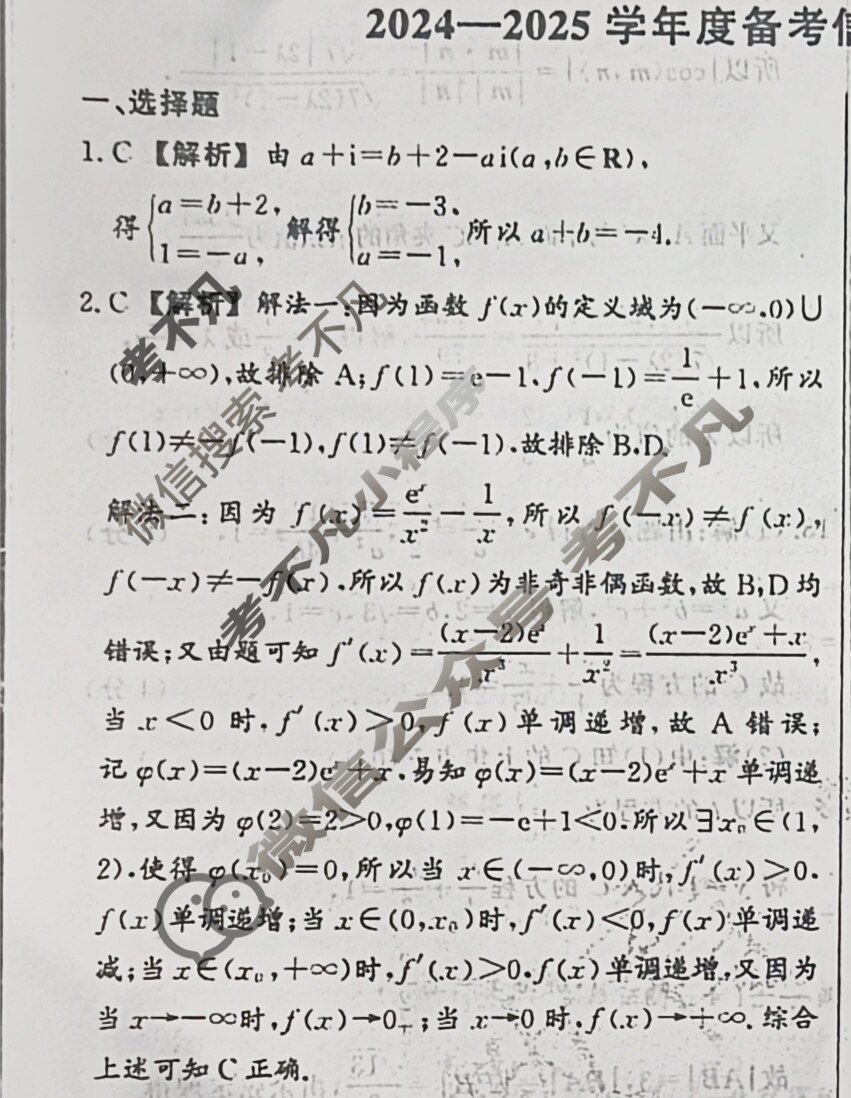 2024—2025 学年度备考信
一、选择题
1. C 【解析】由 a+i=b+2-ai(a,b∈R),
得 {a=b+2, 1=-a, 解得 {b=-3, a=-1, 所以 a+b=-4.
2. C 【解析】解法一:因为函数 f(x)的定义域为(-∞,0)∪
(0,+∞),故排除 A;f(1)=e-1,f(-1)=1/e+1,所以
f(1)≠-f(-1),f(1)≠f(-1),故排除 B,D.
解法二:因为 f(x)=e^x/x^2-1/x,所以 f(-x)≠f(x),
f(-x)≠-f(x),所以 f(x)为非奇非偶函数,故 B,D 均
错误;又由题可知 f′(x)=(x-2)e^x/x^3+1/x^2=(x-2)e^x+x/x^3,
当 x<0 时,f′(x)>0,f(x)单调递增,故 A 错误;
记 φ(x)=(x-2)e^x+x,易知 φ(x)=(x-2)e^x+x 单调递
增,又因为 φ(2)=2>0,φ(1)=-e+1<0,所以∃x₀∈(1,
2),使得 φ(x₀)=0,所以当 x∈(-∞,0)时,f′(x)>0,
f(x)单调递增;当 x∈(0,x₀)时,f′(x)<0,f(x)单调递
减;当 x∈(x₀,+∞)时,f′(x)>0,f(x)单调递增,又因为
当 x→-∞时,f(x)→0₊;当 x→0 时,f(x)→+∞.综合
上述可知 C 正确.
微信搜索 考不凡
考不凡小程序
微信公众号 考不凡